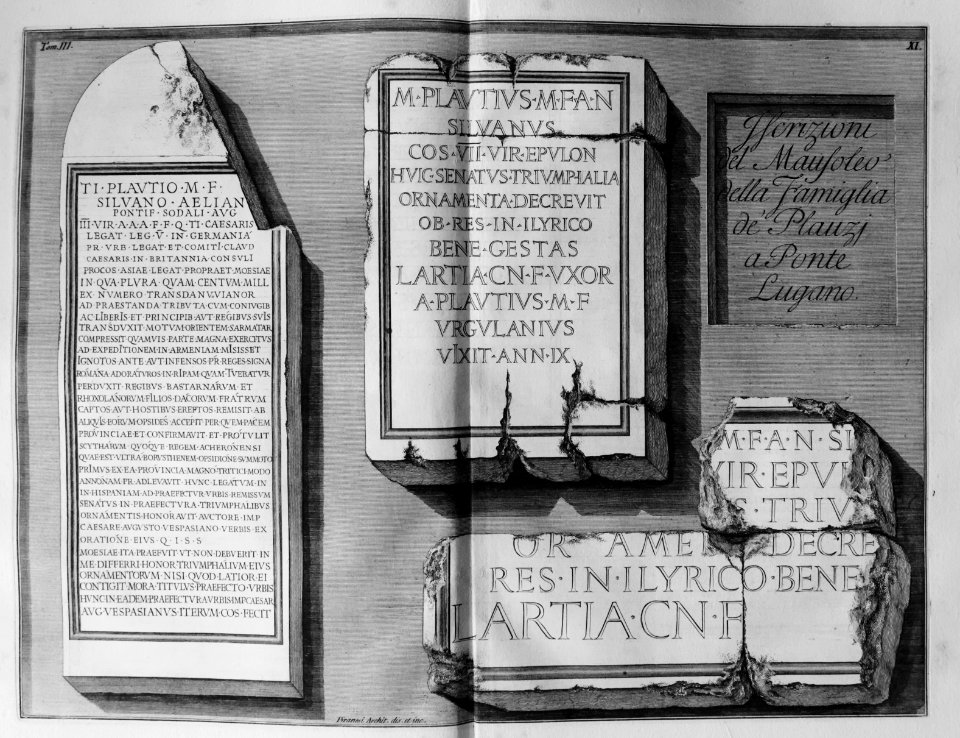 Tom. III.
XI.
TI · PLAVTIO · M · F ·
SILVANO · AELIAN
PONTIF · SODALI · AVG
III · VIR · A · A · A · F · F · Q · TI · CAESARIS
LEGAT · LEG · V · IN · GERMANIA
PR · VRB · LEGAT · ET · COMITI · CLAVD
CAESARIS · IN · BRITANNIA · CONSVLI
PROCOS · ASIAE · LEGAT · PROPRAET · MOESIAE
IN QVA · PLVRA · QVAM · CENTVM · MILL
EX · NVMERO · TRANSDANVVIANOR
AD · PRAESTANDA · TRIBVTA · CVM · CONIVGIB
AC · LIBERIS · ET · PRINCIPIB · AVT · REGIBVS · SVIS
TRANSDVXIT · MOTVM · ORIENTEM · SARMATAR
COMPRESSIT · QVAMVIS · PARTE · MAGNA · EXERCITVS
AD · EXPEDITIONEM · IN · ARMENIAM · MISISSET
IGNOTOS · ANTE · AVT · INFENSOS · P · R · REGES · SIGNA
ROMANA · ADORATVROS · IN · RIPAM · QVAM · TVEBATVR
PERDVXIT · REGIBVS · BASTARNARVM · ET
RHOXOLANORVM · FILIOS · DACORVM · FRATRVM
CAPTOS · AVT · HOSTIBVS · EREPTOS · REMISIT · AB
ALIQVIS · EORVM · OPSIDES · ACCEPIT · PER · QVEM · PACEM
PROVINCIAE · ET · CONFIRMAVIT · ET · PROTVLIT
SCYTHARVM · QVOQVE · REGEM · ACHERONENSI
QVAE · EST · VLTRA · BORVSTHENEM · OPSIDIONE · SVMMOTO
PRIMVS · EX · EA · PROVINCIA · MAGNO · TRITICI · MODO
ANNONAM · P · R · ADLEVAVIT · HVNC · LEGATVM · IN
IN · HISPANIAM · AD · PRAEFECTVR · VRBIS · REMISSVM
SENATVS · IN · PRAEFECTVRA · TRIVMPHALIBVS
ORNAMENTIS · HONORAVIT · AVCTORE · IMP
CAESARE · AVGVSTO · VESPASIANO · VERBIS · EX
ORATIONE · EIVS · Q · I · S · S
MOESIAE · ITA · PRAEFVIT · VT · NON · DEBVERIT · IN
ME · DIFFERRI · HONOR · TRIVMPHALIVM · EIVS
ORNAMENTORVM · NISI · QVOD · LATIOR · EI
CONTIGIT · MORA · TITVLVS · PRAEFECTO · VRBIS
HVNC · IN · EADEM · PRAEFECTVRA · VRBIS · IMP · CAESAR
AVG · VESPASIANVS · ITERVM · COS · FECIT
M · PLAVTIVS · M · F · A · N
SILVANVS
COS · VII · VIR · EPVLON
HVIC · SENATVS · TRIVMPHALIA
ORNAMENTA · DECREVIT
OB · RES · IN · ILYRICO
BENE · GESTAS
LARTIA · CN · F · VXOR
A · PLAVTIVS · M · F
VRGVLANIVS
VIXIT · ANN · IX
Iscrizioni
del Mausoleo
della Famiglia
de Plauzj
a Ponte
Lugano
M · F · A · N · SI
VIR · EPVL
S · TRIV
OR AMEN DECRE
RES · IN · ILYRICO · BENE
LARTIA · CN · F
Piranesi Archit. dis. et inc.